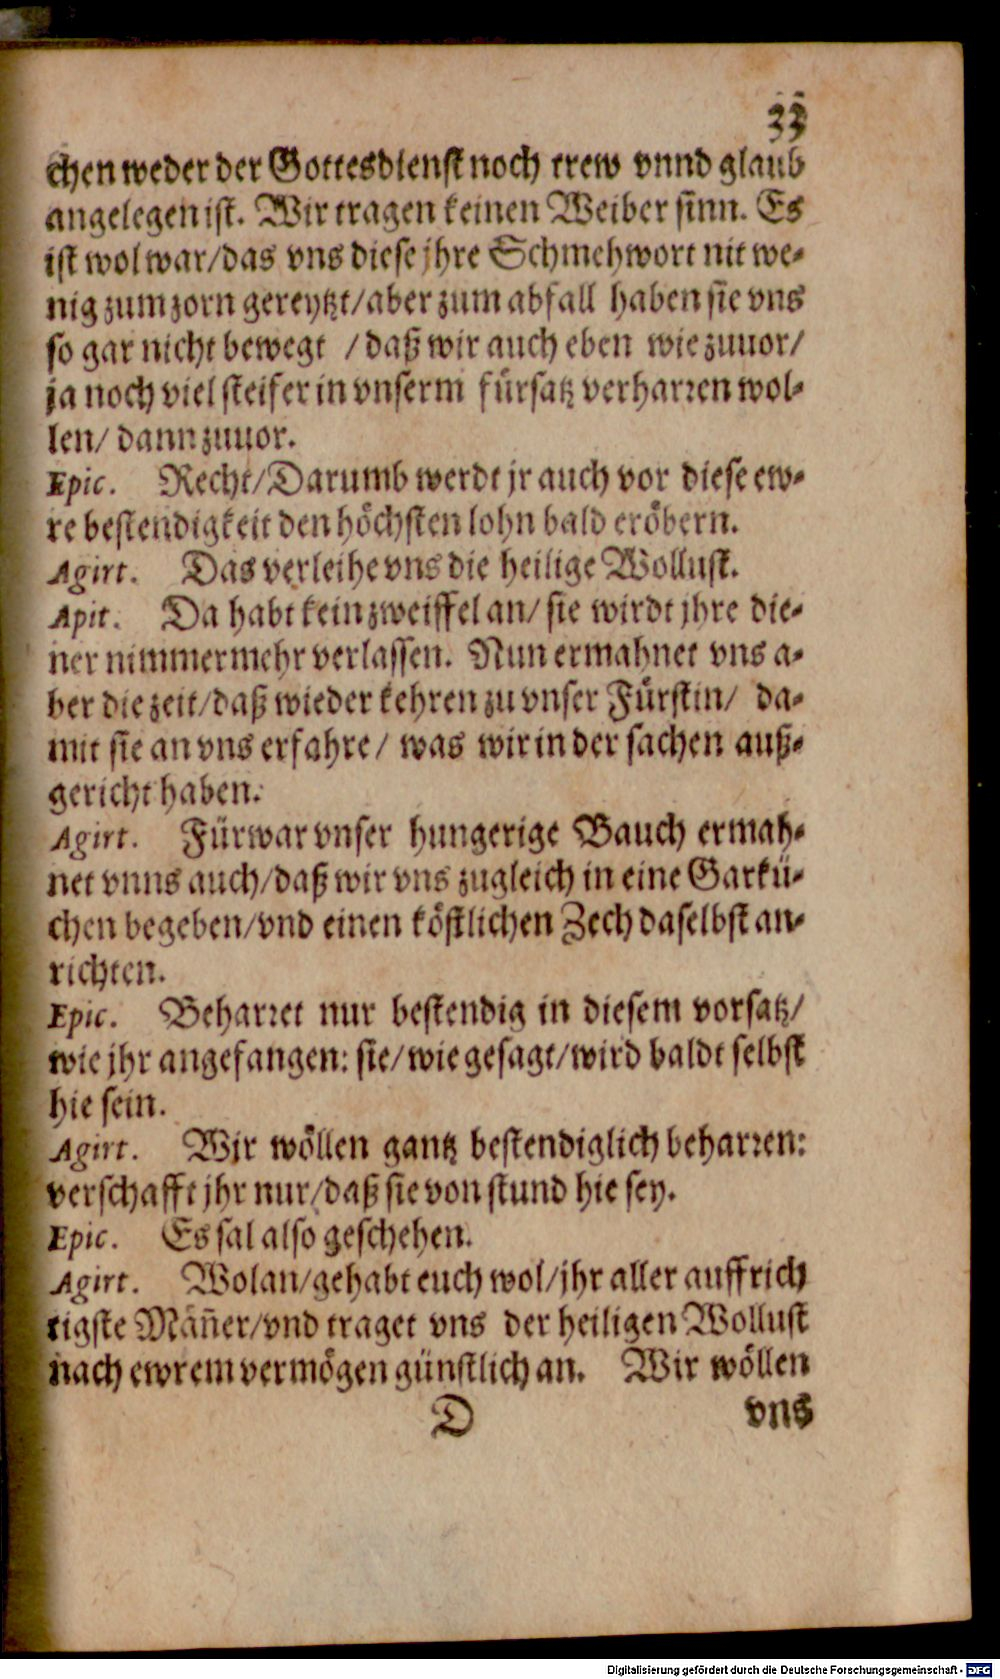 33
chen weder der Gottesdienst noch trew vnnd glaub
angelegen ist. Wir tragen keinen Weiber sinn. Es
ist wol war/das vns diese jhre Schmehwort nit we-
nig zum zorn gereytzt/aber zum abfall haben sie vns
so gar nicht bewegt /daß wir auch eben wie zuuor/
ja noch viel steifer in vnserm fürsatz verharren wol-
len/ dann zuuor.
Epic. Recht/Darumb werdt jr auch vor diese ew-
re bestendigkeit den höchsten lohn bald eröbern.
Agirt. Das verleihe vns die heilige Wollust.
Apit. Da habt kein zweiffel an/ sie wirdt jhre die-
ner nimmermehr verlassen. Nun ermahnet vns a-
ber die zeit/daß wieder kehren zu vnser Fürstin/ da-
mit sie an vns erfahre/ was wir in der sachen auß-
gericht haben.
Agirt. Fürwar vnser hungerige Bauch ermah-
net vnns auch/daß wir vns zugleich in eine Garkü-
chen begeben/vnd einen köstlichen Zech daselbst an-
richten.
Epic. Beharret nur bestendig in diesem vorsatz/
wie jhr angefangen: sie/wie gesagt/wird baldt selbst
hie sein.
Agirt. Wir wöllen gantz bestendiglich beharren:
verschafft jhr nur/daß sie von stund hie sey.
Epic. Es sal also geschehen.
Agirt. Wolan/gehabt euch wol/jhr aller auffrich
tigste Mäñer/vnd traget vns der heiligen Wollust
nach ewrem vermögen günstlich an. Wir wöllen
D vns
Digitalisierung gefördert durch die Deutsche Forschungsgemeinschaft - DFG